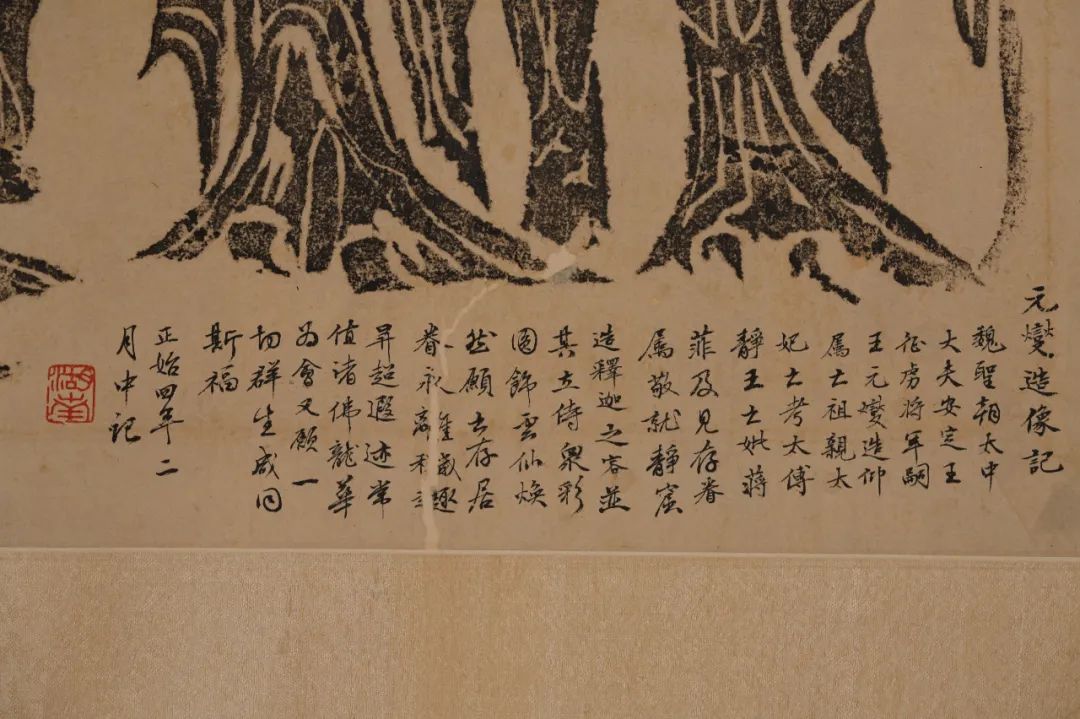 元燮造像記
魏聖朝太中
大夫安定王
征虏將軍嗣
王元燮造仰
属亡祖親太
妃亡考太傅
靜王亡妣蔣
菲及見存眷
属敬就靜窟
造釋迦之容並
其立侍衆彩
圖飾雲仙煥
然願亡存居
眷永離趣
昇超遐迹常
值诸佛龍華
为會又願一
切群生咸同
斯福
正始四年二
月中记